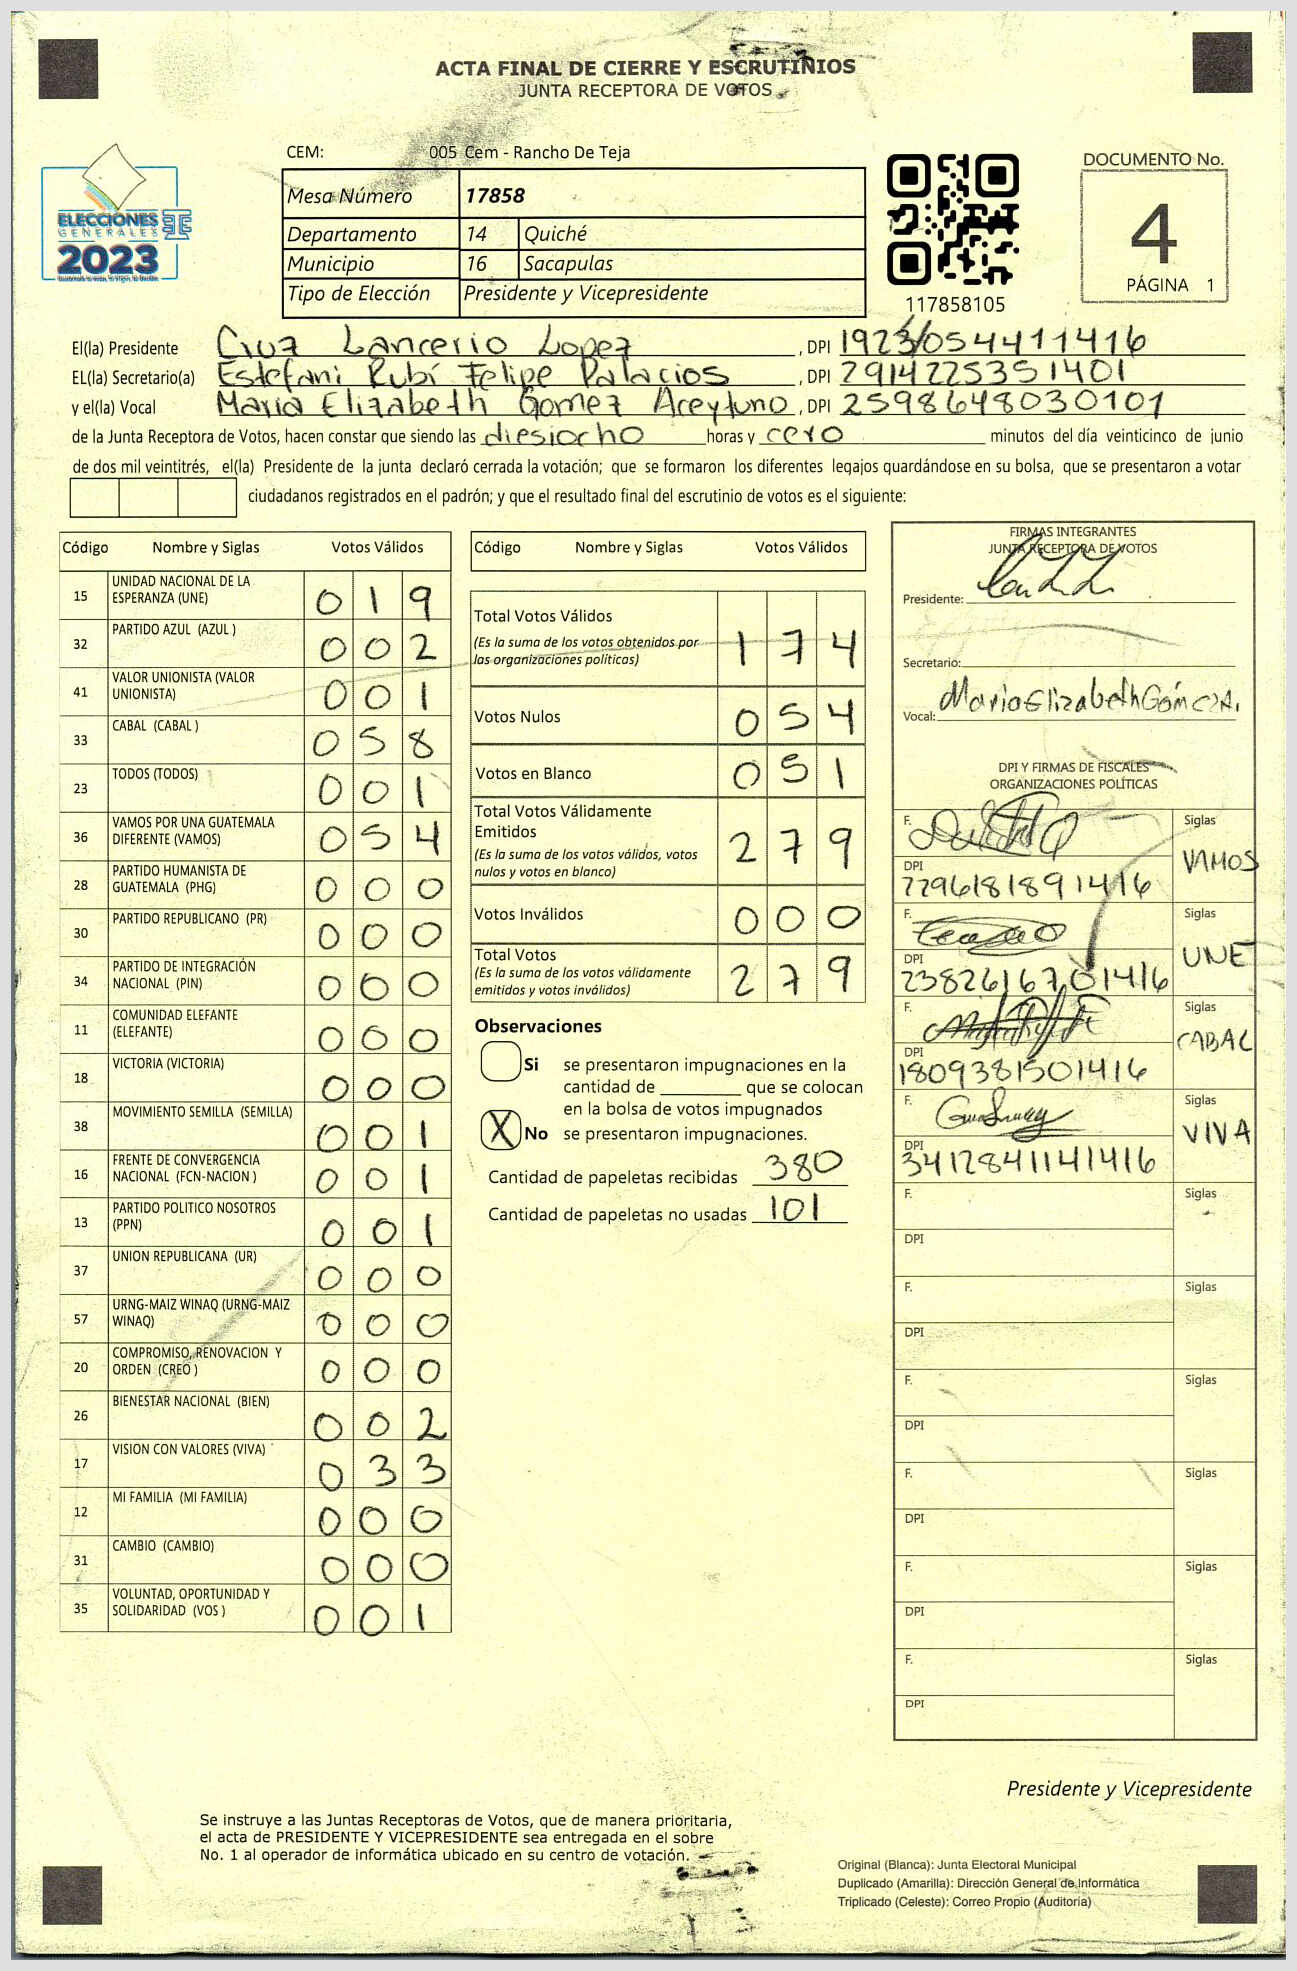 ACTA FINAL DE CIERRE Y ESCRUTINIOS
JUNTA RECEPTORA DE VOTOS
ELECCIONES
GENERALES
2023
CEM: 005 Cem - Rancho De Teja
Mesa Número 17858
Departamento 14 Quiché
Municipio 16 Sacapulas
Tipo de Elección Presidente y Vicepresidente
117858105
DOCUMENTO No.
4
PÁGINA 1
El(la) Presidente Cruz Lancerio Lopez, DPI 1923/054411416
EL(la) Secretario(a) Estefani Rubí Felipe Palacios, DPI 2914225351401
y el(la) Vocal Maria Elizabeth Gomez Aceytuno, DPI 2598648030101
de la Junta Receptora de Votos, hacen constar que siendo las diesiocho horas y cero minutos del día veinticinco de junio
de dos mil veintitrés, el(la) Presidente de la junta declaró cerrada la votación; que se formaron los diferentes legajos guardándose en su bolsa, que se presentaron a votar
ciudadanos registrados en el padrón; y que el resultado final del escrutinio de votos es el siguiente:
Código Nombre y Siglas Votos Válidos
15 UNIDAD NACIONAL DE LA ESPERANZA (UNE) 0 1 9
32 PARTIDO AZUL (AZUL ) 0 0 2
41 VALOR UNIONISTA (VALOR UNIONISTA) 0 0 1
33 CABAL (CABAL ) 0 5 8
23 TODOS (TODOS) 0 0 1
36 VAMOS POR UNA GUATEMALA DIFERENTE (VAMOS) 0 5 4
28 PARTIDO HUMANISTA DE GUATEMALA (PHG) 0 0 0
30 PARTIDO REPUBLICANO (PR) 0 0 0
34 PARTIDO DE INTEGRACIÓN NACIONAL (PIN) 0 0 0
11 COMUNIDAD ELEFANTE (ELEFANTE) 0 0 0
18 VICTORIA (VICTORIA) 0 0 0
38 MOVIMIENTO SEMILLA (SEMILLA) 0 0 1
16 FRENTE DE CONVERGENCIA NACIONAL (FCN-NACION ) 0 0 1
13 PARTIDO POLITICO NOSOTROS (PPN) 0 0 1
37 UNION REPUBLICANA (UR) 0 0 0
57 URNG-MAIZ WINAQ (URNG-MAIZ WINAQ) 0 0 0
20 COMPROMISO, RENOVACION Y ORDEN (CREO ) 0 0 0
26 BIENESTAR NACIONAL (BIEN) 0 0 2
17 VISION CON VALORES (VIVA) 0 3 3
12 MI FAMILIA (MI FAMILIA) 0 0 0
31 CAMBIO (CAMBIO) 0 0 0
35 VOLUNTAD, OPORTUNIDAD Y SOLIDARIDAD (VOS ) 0 0 1
Código Nombre y Siglas Votos Válidos
Total Votos Válidos
(Es la suma de los votos obtenidos por las organizaciones políticas) 1 7 4
Votos Nulos 0 5 4
Votos en Blanco 0 5 1
Total Votos Válidamente Emitidos
(Es la suma de los votos válidos, votos nulos y votos en blanco) 2 7 9
Votos Inválidos 0 0 0
Total Votos
(Es la suma de los votos válidamente emitidos y votos inválidos) 2 7 9
Observaciones
Si se presentaron impugnaciones en la
cantidad de ________ que se colocan
en la bolsa de votos impugnados
X No se presentaron impugnaciones.
Cantidad de papeletas recibidas 380
Cantidad de papeletas no usadas 101
FIRMAS INTEGRANTES
JUNTA RECEPTORA DE VOTOS
Presidente:
Secretario:
Vocal: Maria Elizabeth Góm
DPI Y FIRMAS DE FISCALES
ORGANIZACIONES POLÍTICAS
F. Siglas
VAMOS
DPI
2296181891416
F. Siglas
UNE
DPI
2382616701416
F. Siglas
CABAL
DPI
1809381501416
F. Siglas
VIVA
DPI
3412841141416
F. Siglas
DPI
F. Siglas
DPI
F. Siglas
DPI
F. Siglas
DPI
F. Siglas
DPI
F. Siglas
DPI
Presidente y Vicepresidente
Se instruye a las Juntas Receptoras de Votos, que de manera prioritaria,
el acta de PRESIDENTE Y VICEPRESIDENTE sea entregada en el sobre
No. 1 al operador de informática ubicado en su centro de votación.
Original (Blanca): Junta Electoral Municipal
Duplicado (Amarilla): Dirección General de Informática
Triplicado (Celeste): Correo Propio (Auditoría)